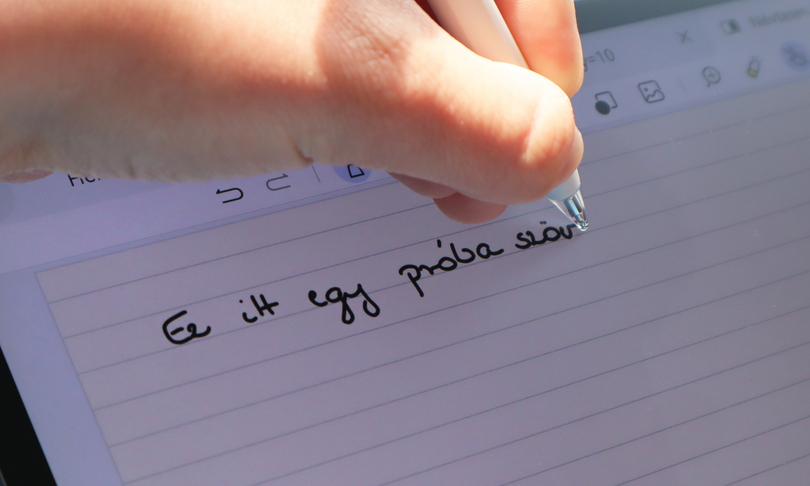 =10
Ez itt egy próba szöv